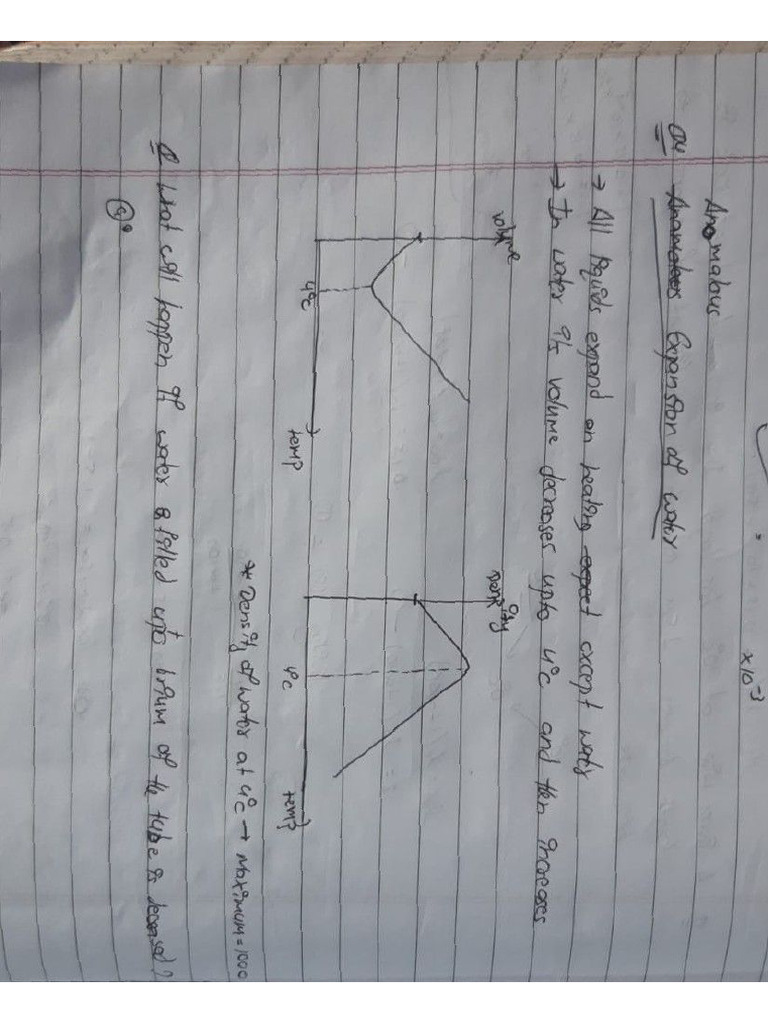 ×10⁻³
Anomalous
Q4 Anamolous Expansion of water
→ All liquids expand on heating expect except water
→ In water its volume decreases upto 4°C and then increases
volume
4°C
temp
Density
4°C
temp
* Density of water at 4°C → maximum = 1000
Q What will happen if water filled upto brium of the tube is decreased?